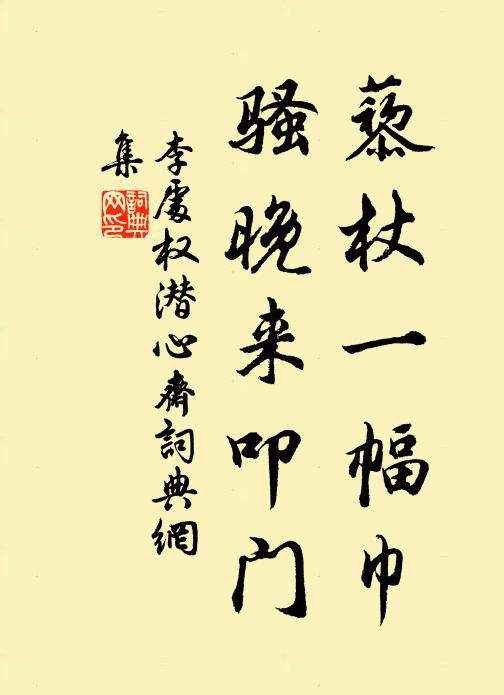 藜杖一幅巾
骚晚来叩门
李处权潜心斋詞典網
集
詞典網印